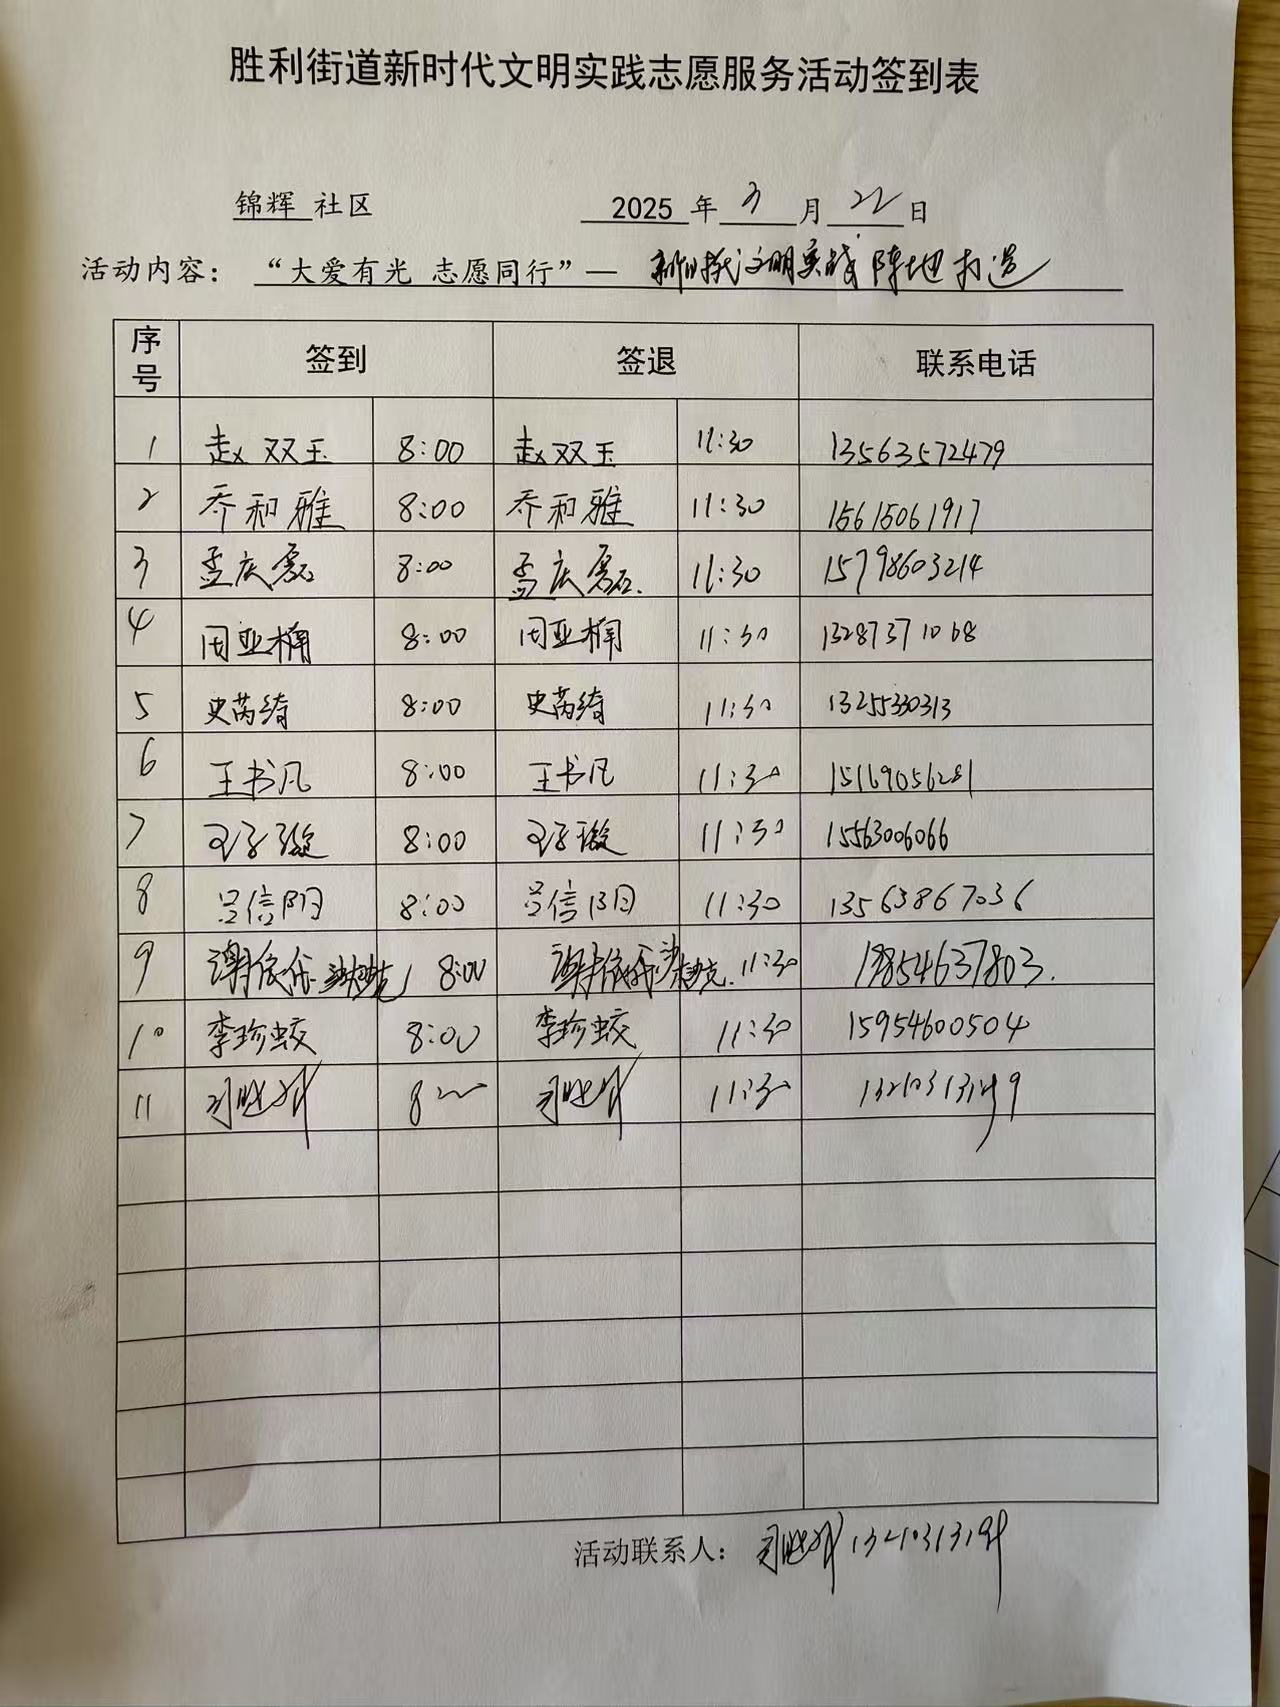 胜利街道新时代文明实践志愿服务活动签到表
锦辉 社区 2025 年 3 月 22 日
活动内容： “大爱有光 志愿同行”— 新时代文明实践阵地打造
序号 签到 签退 联系电话
1 赵双玉 8:00 赵双玉 11:30 13563572479
2 乔和雅 8:00 乔和雅 11:30 15615061917
3 孟庆磊 8:00 孟庆磊 11:30 15798603214
4 周亚楠 8:00 周亚楠 11:30 13287371068
5 史芮绮 8:00 史芮绮 11:30 13255330313
6 王书凡 8:00 王书凡 11:30 15169056281
7 王子璇 8:00 王子璇 11:30 15563006066
8 吕信阳 8:00 吕信阳 11:30 13563867036
9 谢依 8:00 谢依 11:30 19854637803.
10 李珍蛟 8:00 李珍蛟 11:30 15954600504
11 8:00 11:30
活动联系人：